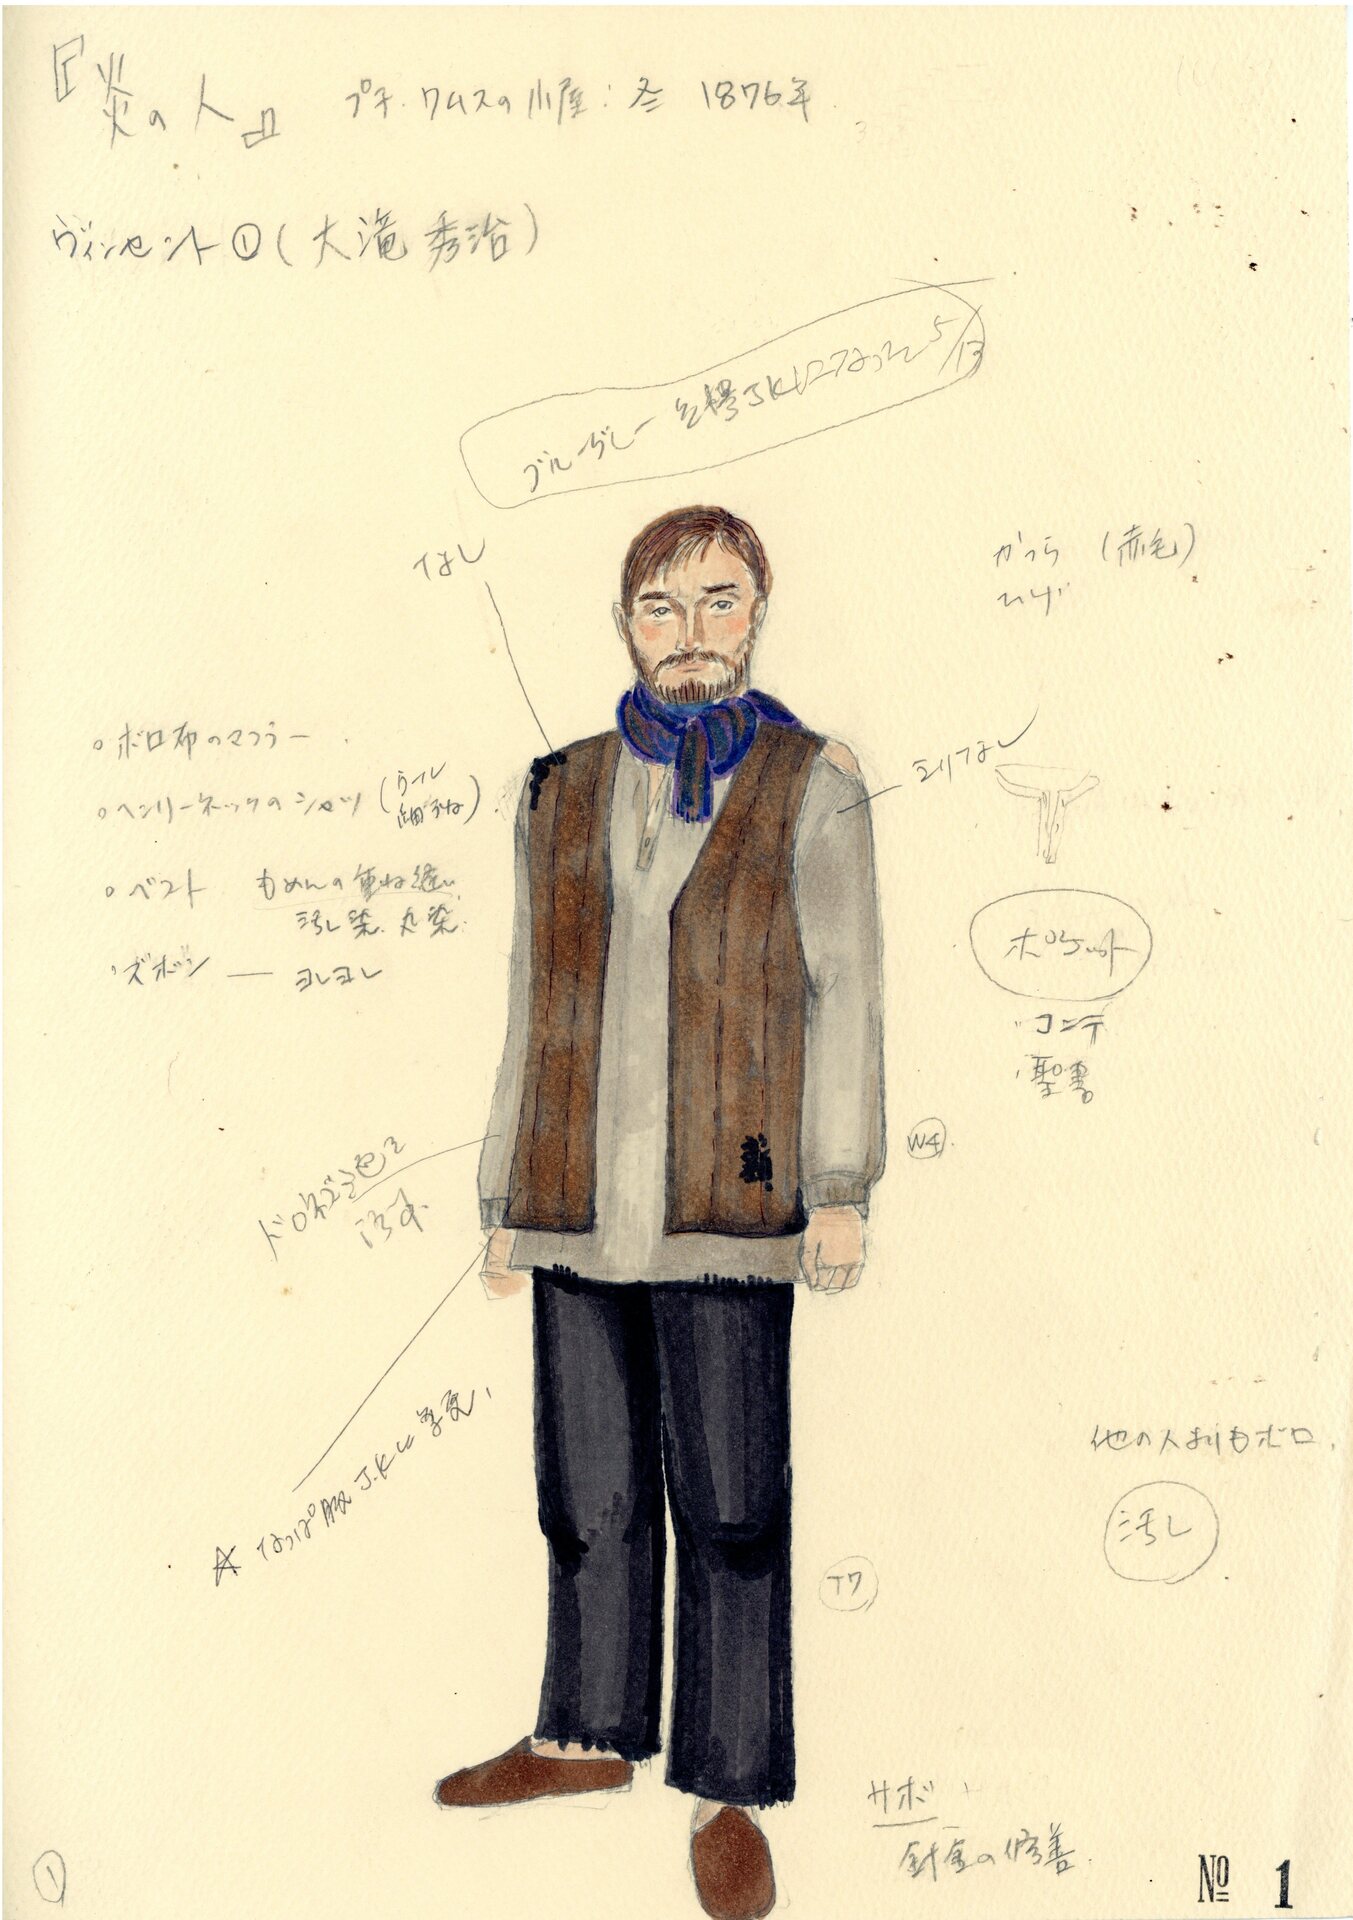 『炎の人』 プチ・ワムスの小屋：冬 1876年
ヴィンセント①(大滝秀治)
ブルーグレー JK になって 5/13
なし
かつら (赤毛)
ひげ
。ボロ布のマフラー
。ヘンリーネックのシャツ (ウール
エリなし
。ベスト もめんの重ね縫い
汚し染 丸染
ズボン — ヨレヨレ
ポケット
コンテ
聖書
W4
汚す
☆ なっぱ服 J.Kに変更
他の人よりもボロ
汚し
T7
サボ
針金の修善
①
№ 1